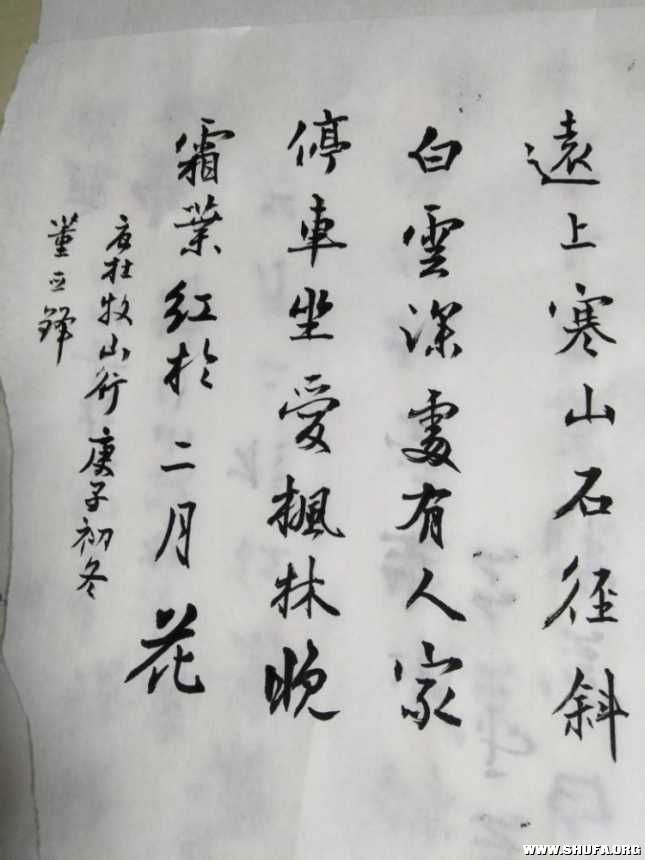 遠上寒山石徑斜
白雲深處有人家
停車坐愛楓林晚
霜葉紅於二月花
杜牧山行 庚子初冬
董
WWW.SHUFA.ORG